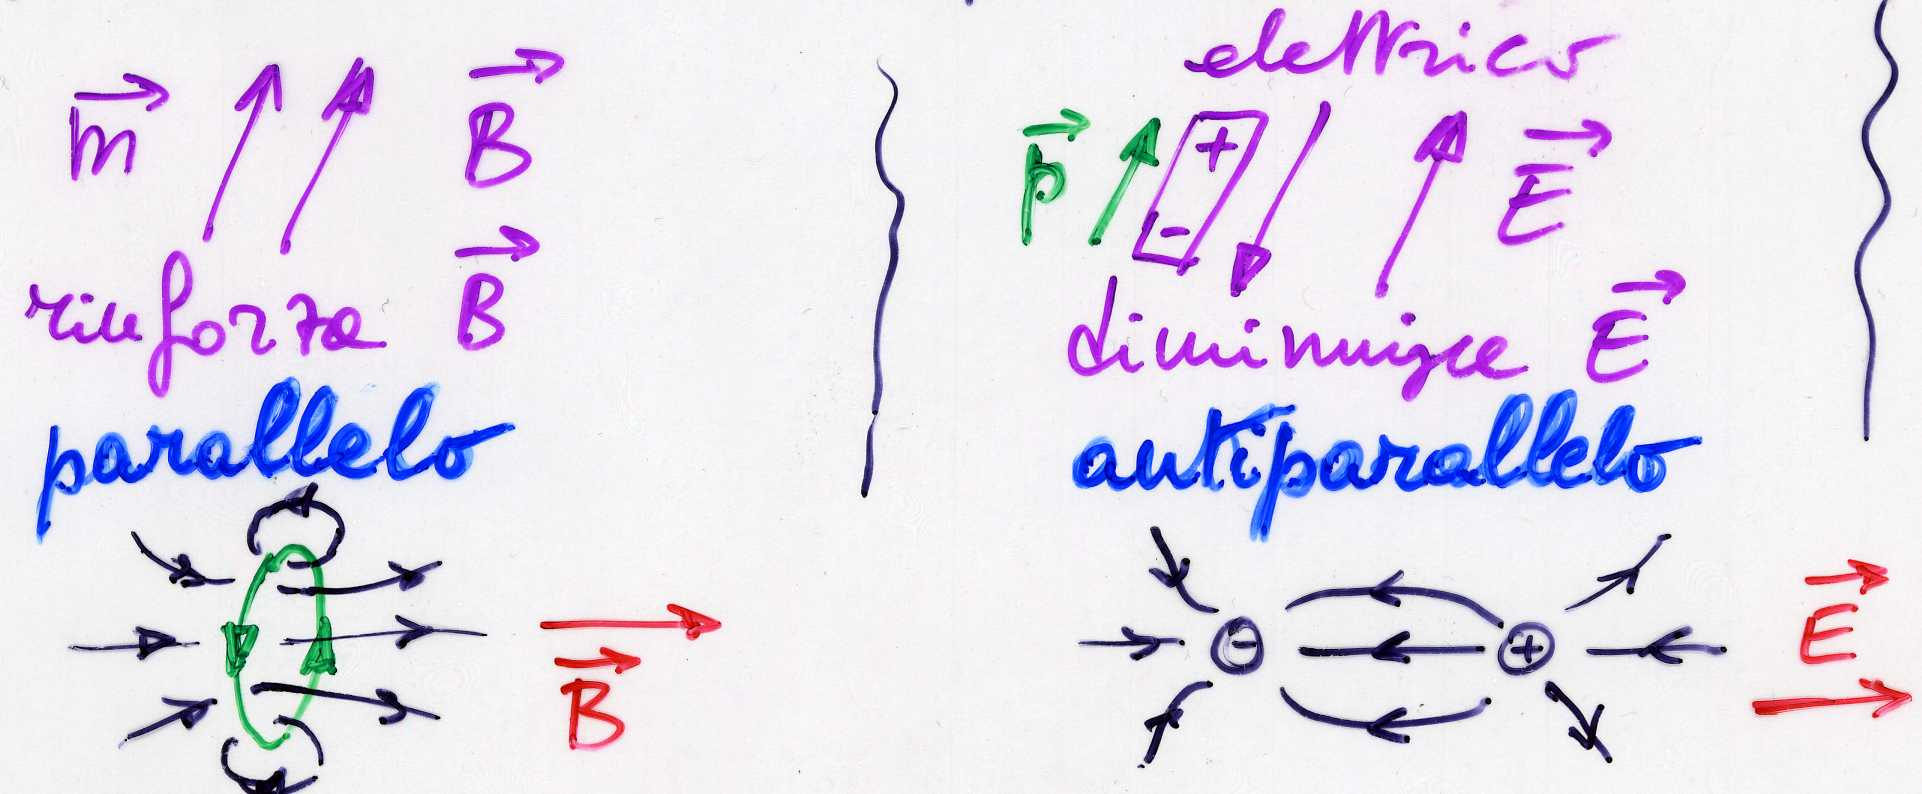 m⃗ B⃗
rinforza B⃗
parallelo
B⃗
elettrico
p⃗ + - E⃗
diminuisce E⃗
antiparallelo
- + E⃗